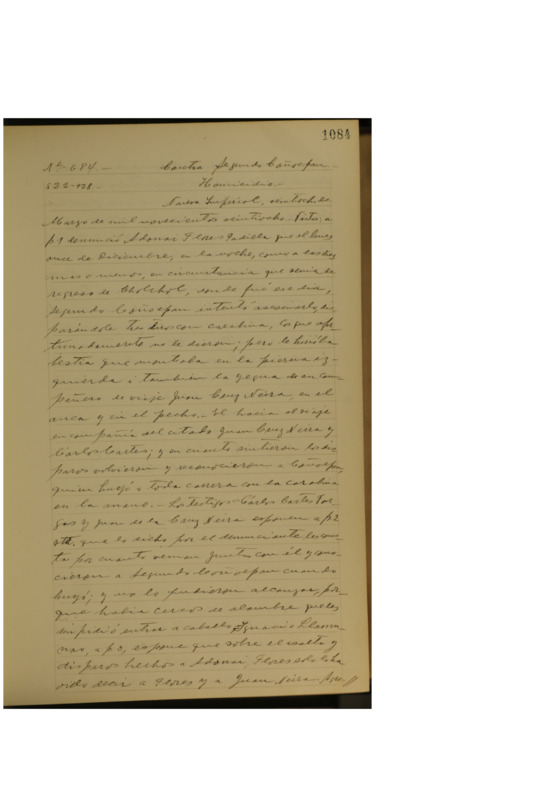 1084
Nº 684.- Contra Segundo Coñoepan.-
Homicidio.-
Nueva Imperial, veintiocho de
Marzo de mil novecientos veintiocho.- Vistos; a
p. 1 denunció Adonai Flores Padilla que el lunes
once de Diciembre, en la noche, como a las diez
mas o menos, en circunstancia que venia de
regreso de Cholchol, donde fué ese dia,
Segundo Coñoepan intentó asesinarlo, dis-
parándole tres tiros con carabina, los que afor-
tunadamente no le dieron; pero le hirió la
bestia que montaba en la pierna iz-
quierda i tambien la yegua de su com-
pañero de viaje Juan Cruz Neira, en el
anca y en el pecho.- El hacia el viaje
en compañia del citado Juan Cruz Neira y
Carlos Cartes; y en cuanto sintieron los dis-
paros volvieron y reconocieron a Coñoepan,
quien huyó a toda carrera con la carabina
en la mano.- Los testigos Carlos Cartes Var-
gas y Juan de la Cruz Neira esponen a p. 2
que lo dicho por el denunciante
por cuanto venian juntos con él y cono-
cieron a Segundo Coñoepan cuando
huyó; y no lo pudieron alcanzar, por-
que habia cercos de alambre que les
impidió entrar a caballo. Ignacio
a p. espone que sobre el asalto y
disparos hechos a Adonai Flores solo lo ha
oido decir a Flores y a Juan Neira.